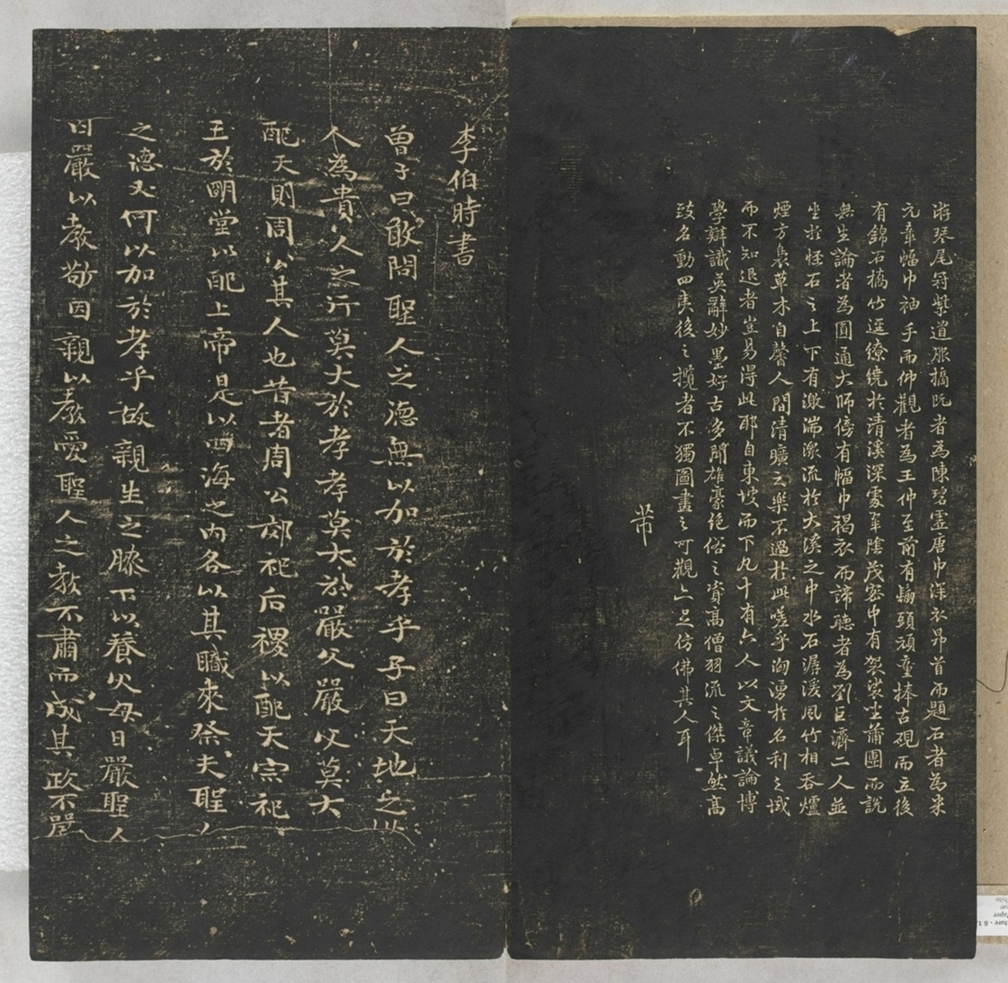 琴尾冠紫道服摘阮者為陳碧虛唐巾深衣昂首而題石者為米
元章幅巾袖手而仰觀者為王仲至前有鬅頭頑童捧古硯而立後
有錦石橋竹逕繚繞於清溪深處翠陰茂密中有袈裟坐蒲團而說
無生論者為圓通大師傍有幅巾褐衣而諦聽者為劉巨濟二人並
坐於怪石之上下有激湍潨流於大溪之中水石潺湲風竹相吞爐
煙方裊草木自馨人間清曠之樂不過於此嗟乎洶湧於名利之域
而不知退者豈易得此耶自東坡而下凡十有六人以文章議論博
學辯識英辭妙墨好古多聞雄豪絕俗之資高僧羽流之傑卓然高
致名動四夷後之攬者不獨圖畫之可觀亦足仿佛其人耳
芾
李伯時書
曾子曰敢問聖人之德無以加於孝乎子曰天地之性
人為貴人之行莫大於孝孝莫大於嚴父嚴父莫大
配天則周公其人也昔者周公郊祀后稷以配天宗祀
王於明堂以配上帝是以四海之內各以其職來祭夫聖人
之德又何以加於孝乎故親生之膝下以養父母日嚴聖人
因嚴以教敬因親以教愛聖人之教不肅而成其政不嚴